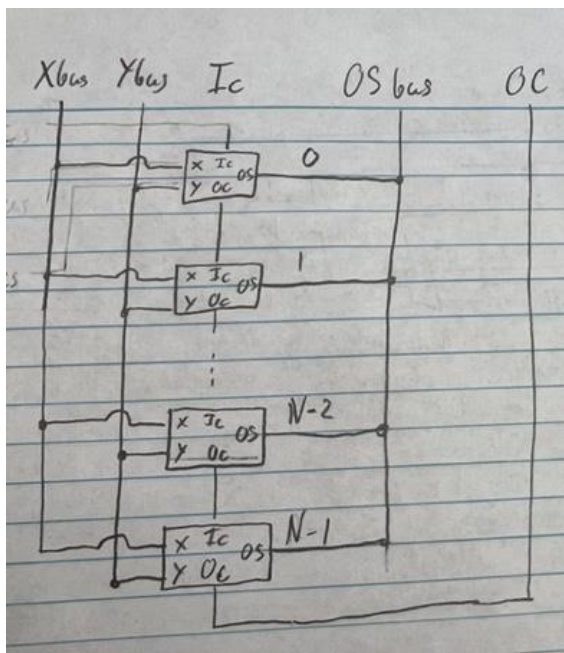 Xbus Ybus Ic OSbus OC
X Ic
OS
Y Oc
0
X Ic
OS
Y Oc
1
X Ic
OS
Y Oc
N-2
X Ic
OS
Y Oc
N-1